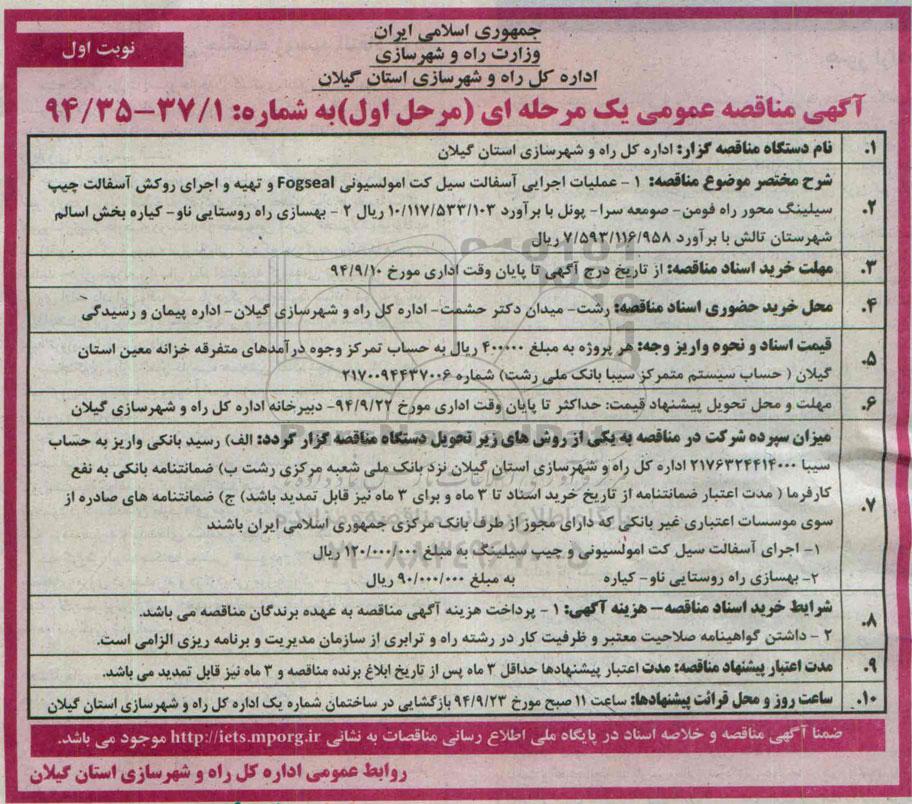 جمهوری اسلامی ایران
وزارت راه و شهرسازی
اداره کل راه و شهرسازی استان گیلان
نوبت اول
آگهی مناقصه عمومی یک مرحله ای (مرحل اول)به شماره: ۳۷/۱-۹۴/۳۵
۱. نام دستگاه مناقصه گزار: اداره کل راه و شهرسازی استان گیلان
۲. شرح مختصر موضوع مناقصه: ۱ - عملیات اجرایی آسفالت سیل کت امولسیونی Fogseal و تهیه و اجرای روکش آسفالت چیپ
سیلینگ محور راه فومن- صومعه سرا- پونل با برآورد ۱۰/۱۱۷/۵۳۳/۱۰۳ ریال ۲ - بهسازی راه روستایی ناو- کیاره بخش اسالم
شهرستان تالش با برآورد ۷/۵۹۳/۱۱۶/۹۵۸ ریال
۳. مهلت خرید اسناد مناقصه: از تاریخ درج آگهی تا پایان وقت اداری مورخ ۹۴/۹/۱۰
۴. محل خرید حضوری اسناد مناقصه: رشت- میدان دکتر حشمت- اداره کل راه و شهرسازی گیلان- اداره پیمان و رسیدگی
۵. قیمت اسناد و نحوه واریز وجه: هر پروژه به مبلغ ۴۰۰۰۰۰ ریال به حساب تمرکز وجوه درآمدهای متفرقه خزانه معین استان
گیلان ( حساب سیستم متمرکز سیبا بانک ملی رشت) شماره ۲۱۷۰۰۹۴۴۳۷۰۰۶
۶. مهلت و محل تحویل پیشنهاد قیمت: حداکثر تا پایان وقت اداری مورخ ۹۴/۹/۲۲- دبیرخانه اداره کل راه و شهرسازی گیلان
۷. میزان سپرده شرکت در مناقصه به یکی از روش های زیر تحویل دستگاه مناقصه گزار گردد: الف) رسید بانکی واریز به حساب
سیبا ۲۱۷۶۳۲۴۴۱۴۰۰۰ اداره کل راه و شهرسازی استان گیلان نزد بانک ملی شعبه مرکزی رشت ب) ضمانتنامه بانکی به نفع
کارفرما ( مدت اعتبار ضمانتنامه از تاریخ خرید اسناد تا ۳ ماه و برای ۳ ماه نیز قابل تمدید باشد) ج) ضمانتنامه های صادره از
سوی موسسات اعتباری غیر بانکی که دارای مجوز از طرف بانک مرکزی جمهوری اسلامی ایران باشند
۱- اجرای آسفالت سیل کت امولسیونی و چیپ سیلینگ به مبلغ ۱۲۰/۰۰۰/۰۰۰ ریال
۲- بهسازی راه روستایی ناو- کیاره به مبلغ ۹۰/۰۰۰/۰۰۰ ریال
۸. شرایط خرید اسناد مناقصه- هزینه آگهی: ۱ - پرداخت هزینه آگهی مناقصه به عهده برندگان مناقصه می باشد.
۲ - داشتن گواهینامه صلاحیت معتبر و ظرفیت کار در رشته راه و ترابری از سازمان مدیریت و برنامه ریزی الزامی است.
۹. مدت اعتبار پیشنهاد مناقصه: مدت اعتبار پیشنهادها حداقل ۳ ماه پس از تاریخ ابلاغ برنده مناقصه و ۳ ماه نیز قابل تمدید می باشد.
۱۰. ساعت روز و محل قرائت پیشنهادها: ساعت ۱۱ صبح مورخ ۹۴/۹/۲۳ بازگشایی در ساختمان شماره یک اداره کل راه و شهرسازی استان گیلان
ضمنا آگهی مناقصه و خلاصه اسناد در پایگاه ملی اطلاع رسانی مناقصات به نشانی http://iets.mporg.ir موجود می باشد.
روابط عمومی اداره کل راه و شهرسازی استان گیلان